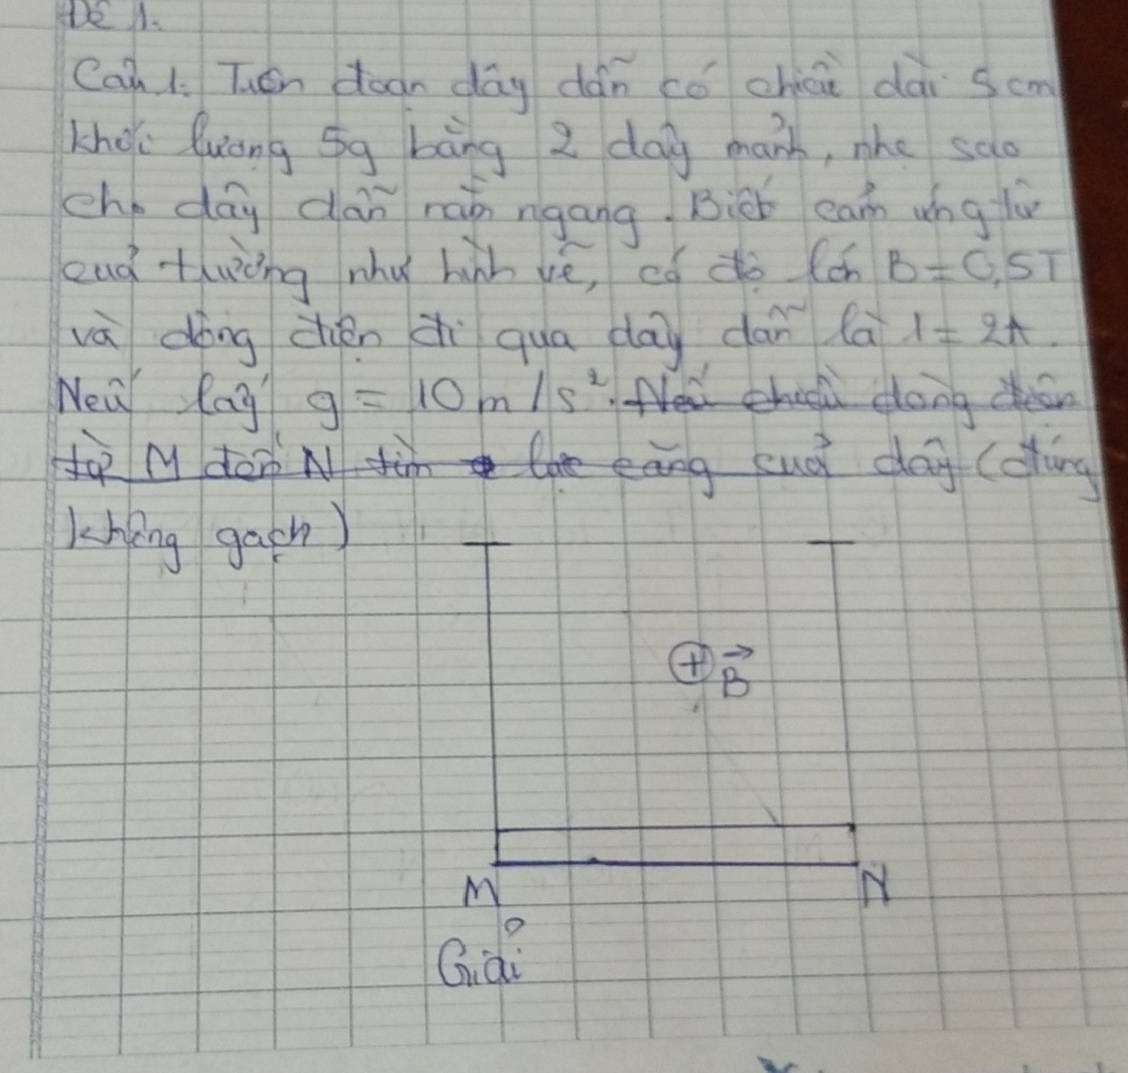 Đề 1.
Câu 1: Treo đoạn dây dẫn có chiều dài 5 cm
khối lượng 5g bằng 2 dây mảnh, nhẹ sao
cho dây dẫn nằm ngang. Biết cảm ứng từ
cuả trường như hình vẽ, có độ lớn B = 0,5T
và dòng điện đi qua dây dẫn là I = 2A.
Nếu lấy g = 10 m/s². Nếu chiều dòng điện
từ M đến N tìm lực căng cuả dây (đúng
không gạch)
⊕ B→
M N
Giải